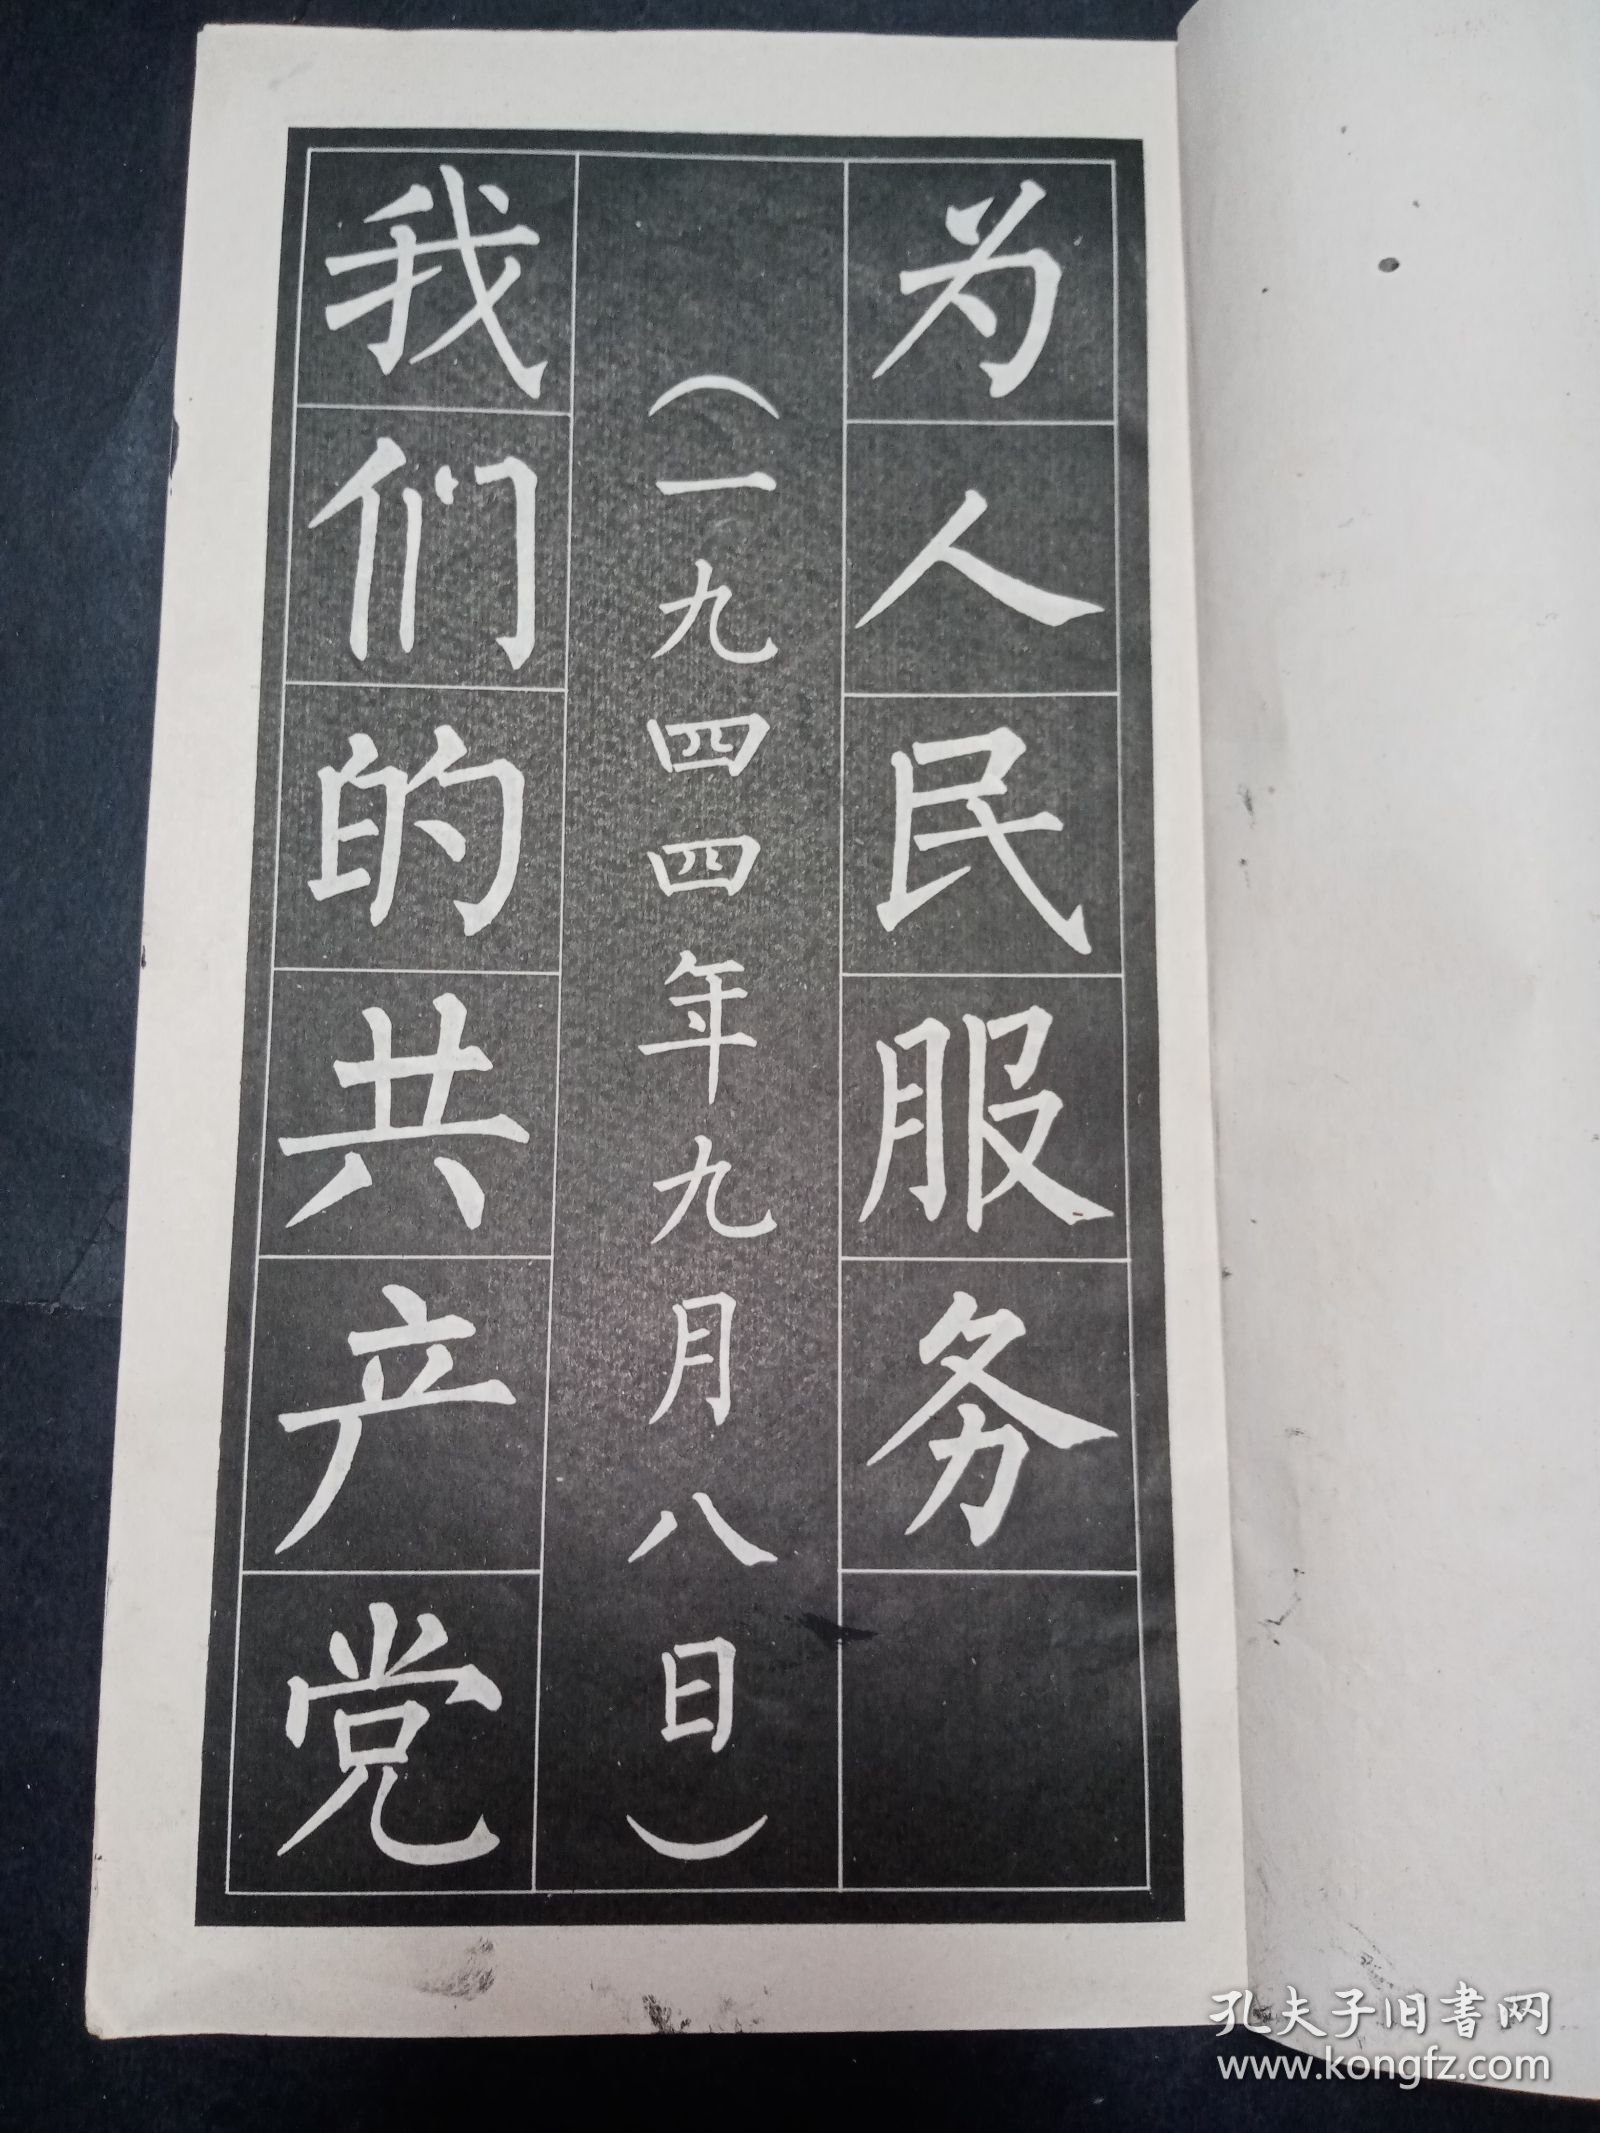 为人民服务
（一九四四年九月八日）
我们的共产党
孔夫子旧书网
www.kongfz.com